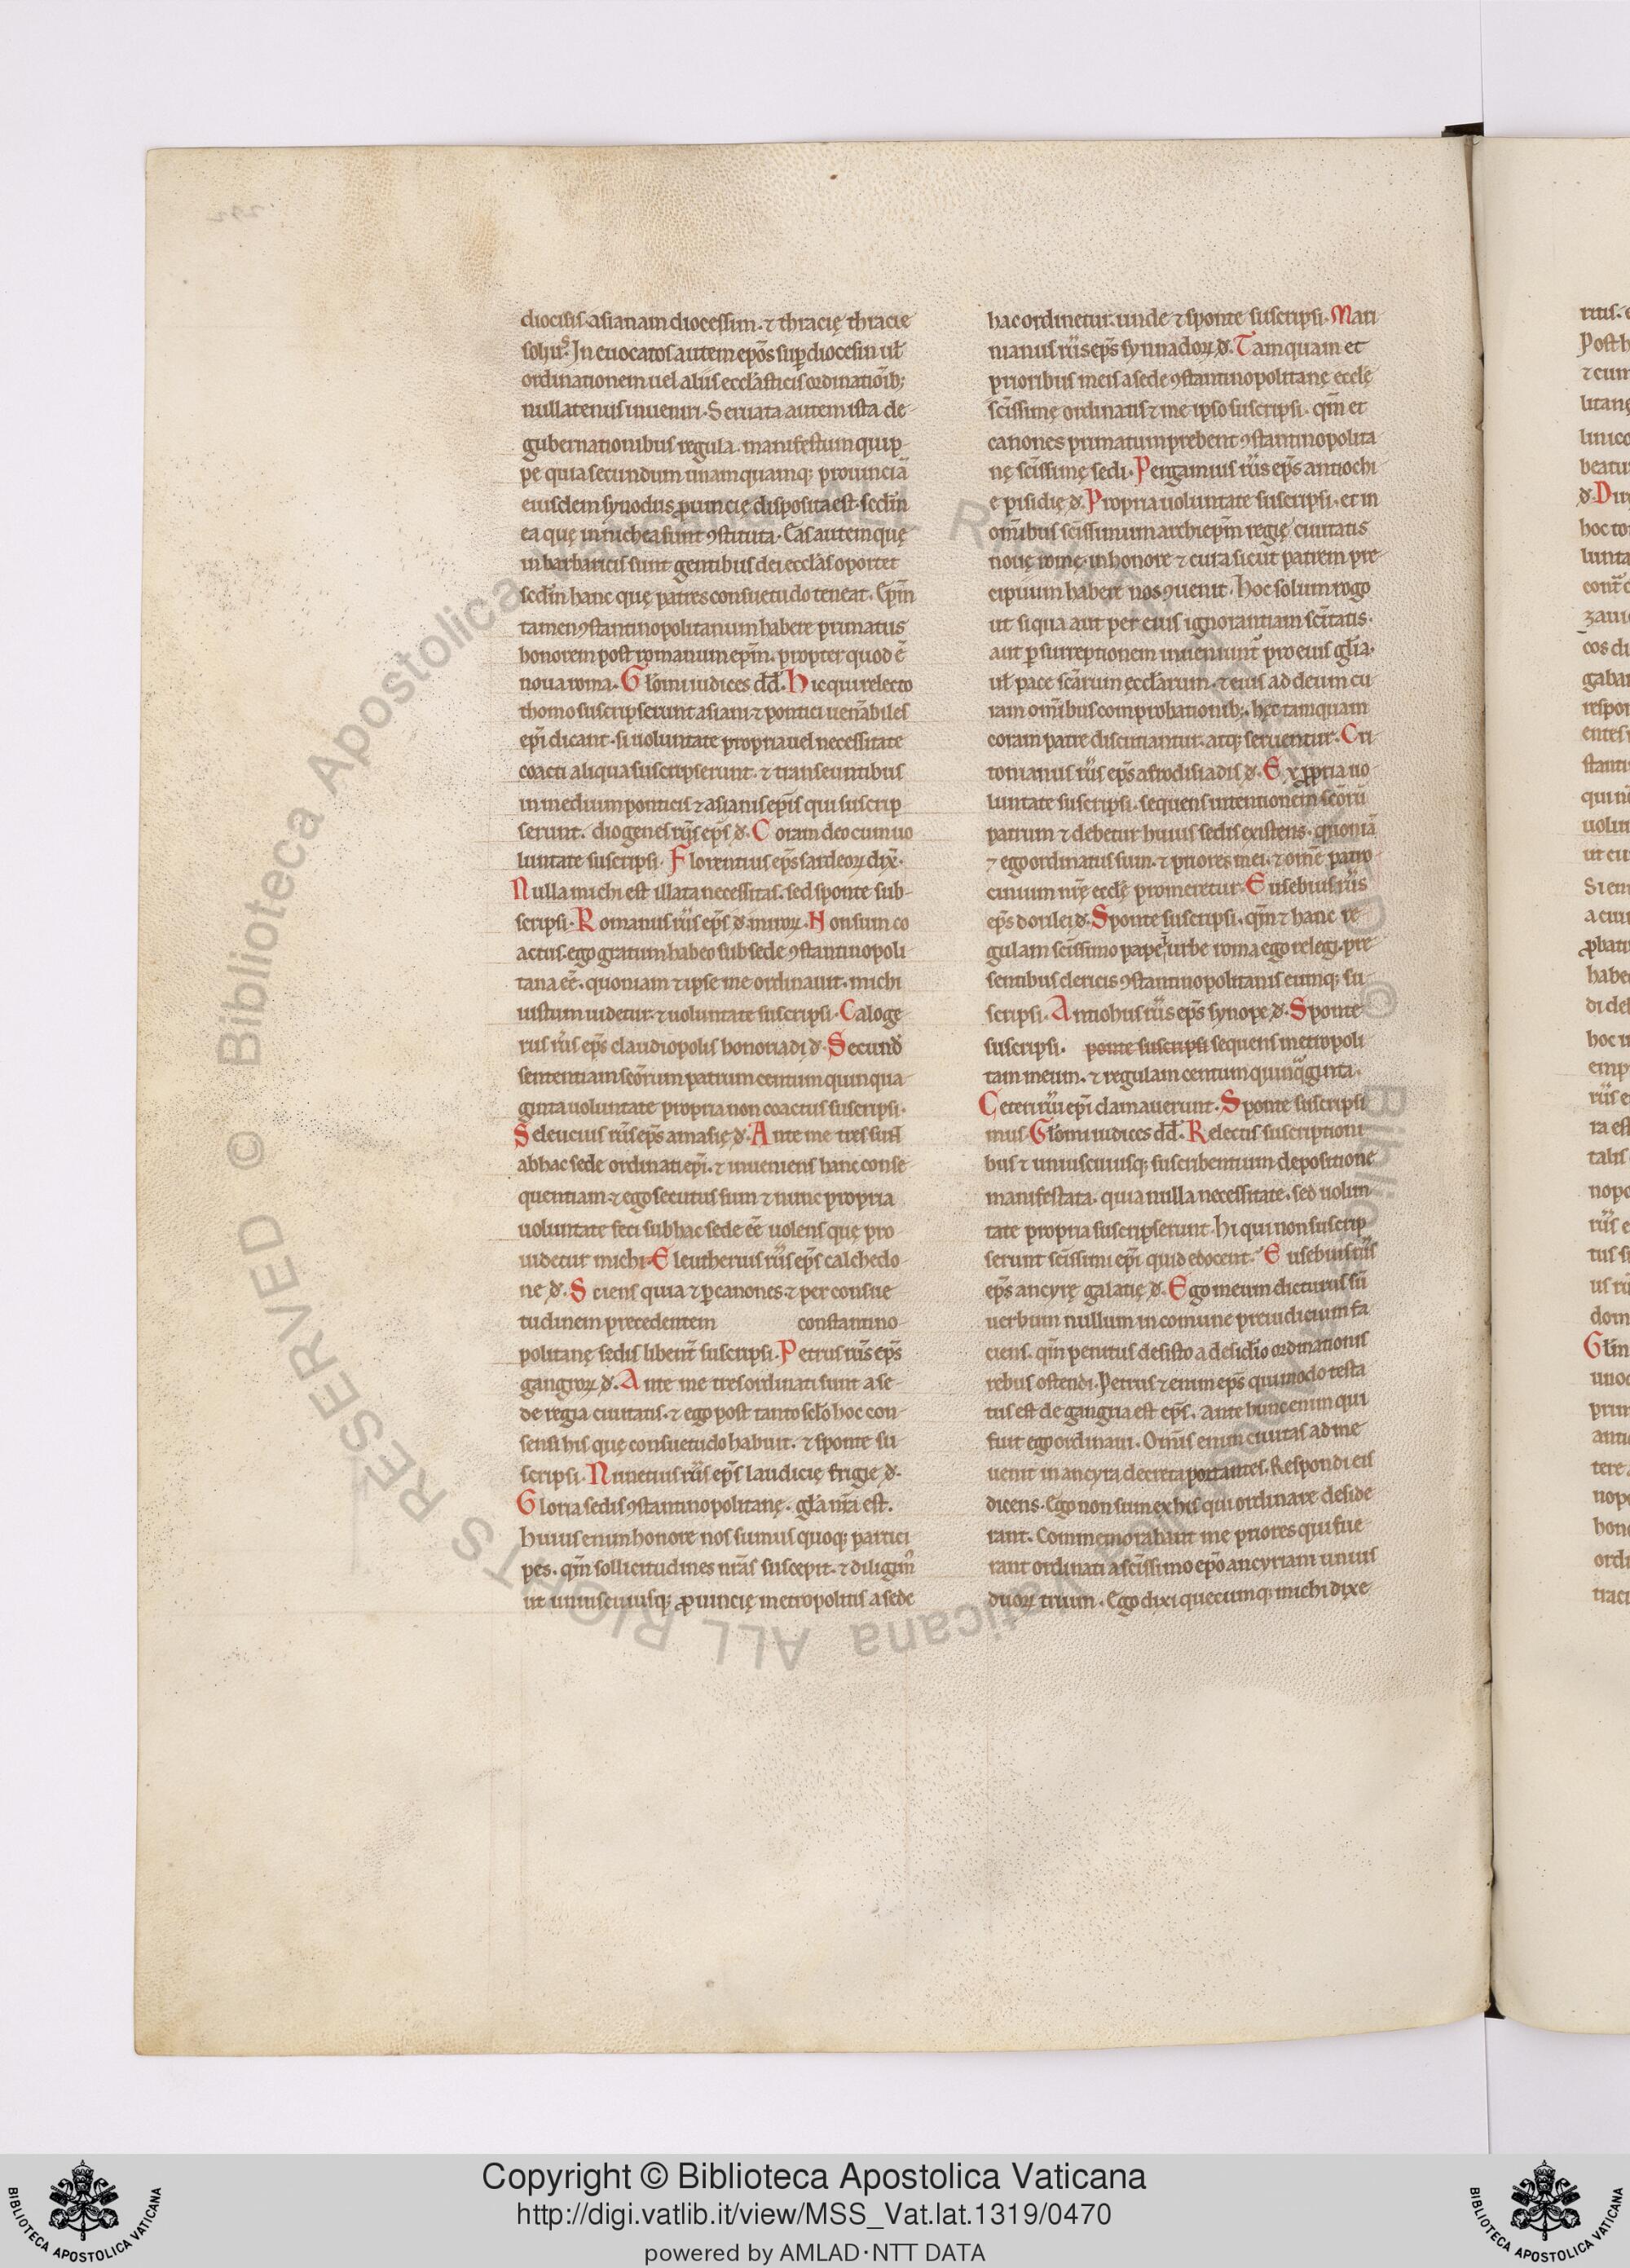 diocisis. asianam diocessim. ⁊ thracię thracie
soliꝰ. In euocatos autem ep̅os sup̱ diocesin ul̅
ordinationem uel aliis eccl̅asticis ordinatio̅ib;
nullatenus inueniri. Seruata autem ista de
gubernationibus regula. manifestum quip
pe quia secundum unamquamq; prouincia̅
eiusdem synodus ꝓuincię disposita est. sed in
ea quę in nichea sunt ꝯstituta. Eas autem quę
in barbaricis sunt gentibus dei eccl̅as oportet
sed̅m hanc quę patres consuetudo teneat. Ep̅m
tamen ꝯstantinopolitanum habere primatus
honorem post romanum ep̅m. propter quod e̅
noua roma. Gl̅omi iudices dd̅. Hic qui relecto
thomo suscripserunt asiani ⁊ pontici uen̅abiles
ep̅i dicant. si uoluntate propria uel necessitate
coacti aliqua suscripserunt. ⁊ transeuntibus
in medium ponticis ⁊ asianis ep̅is qui suscrip
serunt. diogenes rũs ep̅s d̅. Coram deo cum uo
luntate suscripsi. Florentius ep̅s sardeoꝝ dix̅.
Nulla michi est illata necessitas. sed sponte sub
scripsi. Romanus rũs ep̅s d̅ miroꝝ. Non sum co
actus. ego gratum habeo sub sede ꝯstantinopoli
tana ee̅. quoniam ⁊ ipse me ordinauit. michi
iustum uidetur. ⁊ uoluntate suscripsi. Caloge
rus rũs ep̅s claudiopolis honoriadi d̅. Secund̅
sententiam sc̅orum patrum centum quinqua
ginta uoluntate propria non coactus suscripsi.
Seleucius rũs ep̅s amasię d̅. Ante me tres sunt
ab hac sede ordinati ep̅i. ⁊ inueniens hanc conse
quentiam ⁊ ego secutus sum ⁊ nunc propria
uoluntate feci sub hac sede ee̅ uolens quę pro
uidetur michi. Eleutherius rũs ep̅s calchedo
ne d̅. Sciens quia ⁊ p̱ canones ⁊ per consue
tudinem precedentem constantino
politanę sedis libent̅ suscripsi. Petrus rũs ep̅s
gangroꝝ d̅. Ante me tres ordinati sunt a se
de regia ciuitatis. ⁊ ego post tanto scl̅o hoc con
sensi his quę consuetudo habuit. ⁊ sponte su
scripsi. Nunetius rũs ep̅s laudicię frigie d̅.
Gloria sedis ꝯstantinopolitanę. gl̅a nr̅a est.
huius enim honore nos sumus quoq; partici
pes. qm̅ sollicitudines nr̅as suscepit. ⁊ diligim̅
ut uniuscuiusq; ꝓuincię metropolitis a sede
hac ordinetur. unde ⁊ sponte suscripsi. Mari
nianus rũs ep̅s synnadoꝝ d̅. Tamquam et
prioribus meis a sede ꝯstantinopolitanę eccl̅ę
sc̅issimę ordinatis ⁊ me ipso suscripsi. qm̅ et
canones primatum prebent ꝯstantinopolita
nę sc̅issimę sedi. Pergamius rũs ep̅s antiochi
e pisidię d̅. Propria uoluntate suscripsi. et in
om̅ibus sc̅issimum archiep̅m regię ciuitatis
nouę romę. in honore ⁊ cura sicut patrem pre
cipuum habere nos ꝯuenit. Hoc solum rogo
ut si qua aut per eius ignorantiam sc̅itatis.
aut p̱ surreptionem inueniunt̅ pro eius gl̅ia.
ul̅ pace sc̅arum eccl̅arum. ⁊ eius ad deum cu
iam om̅ibus comprobationib;. hęc tamquam
coram patre discutiantur. atq; seruentur. Cri
tonianus rũs ep̅s afrodisiadis d̅. Ex ꝓpria uo
luntate suscripsi. sequens intentionem sc̅oru̅
patrum ⁊ debetur huius sedis existens. quonia̅
⁊ ego ordinatus sum. ⁊ priores mei. ⁊ om̅e patro
cinium nr̅ę eccl̅ę promeretur. Eusebius rũs
ep̅s dorilei d̅. Sponte suscripsi. qm̅ ⁊ hanc re
gulam sc̅issimo papę urbe roma ego relegi. pre
sentibus clericis ꝯstantinopolitanis eumq; su
scripsi. Antiohus rũs ep̅s synope d̅. Sponte
suscripsi. ponte suscripsi sequens metropoli
tam meum. ⁊ regulam centum quinq̅ginta.
Ceteri rũi ep̅i clamauerunt. Sponte suscripsi
mus. Gl̅omi iudices dd̅. Relectis suscriptioni
bus ⁊ uniuscuiusq; suscribentium depositione
manifestata. quia nulla necessitate. sed uolun
tate propria suscripserunt. hi qui non suscrip
serunt sc̅issimi ep̅i quid edocent. Eusebius rũs
ep̅s ancyrę galatię d̅. Ego meum dicturus su̅
uerbum nullum in comune preiudicium fa
ciens. qm̅ penitus desisto a desid̅io ordinationis
rebus ostendi. Petrus ⁊ enim ep̅s qui modo testa
tus est de gangria est ep̅s. Ante hunc enim qui
fuit ego ordinaui. Om̅is enim ciuitas ad me
uenit in ancyra decreta portantes. Respondi eis
dicens. Ego non sum ex his qui ordinare deside
rant. Commemorabant me priores qui fue
rant ordinati a sc̅issimo ep̅o ancyriam unius
duoꝝ trium. Ego dixi quecumq; michi dixe
Copyright © Biblioteca Apostolica Vaticana
http://digi.vatlib.it/view/MSS_Vat.lat.1319/0470
powered by AMLAD·NTT DATA
BIBLIOTECA APOSTOLICA VATICANA
BIBLIOTECA APOSTOLICA VATICANA
© Biblioteca Apostolica Vaticana ALL RIGHTS RESERVED © Biblioteca Apostolica Vaticana ALL RIGHTS RESERVED